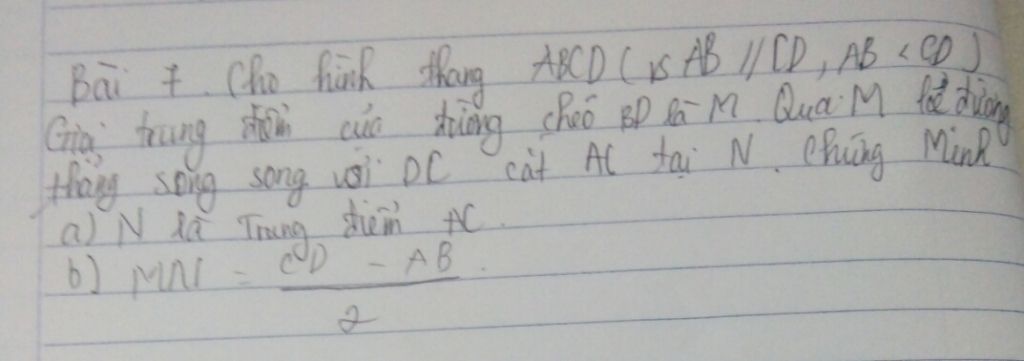 Bài 7. Cho hình thang ABCD ( AB // CD, AB < CD )
Gọi trung điểm của đường chéo BD là M. Qua M kẻ đường
thẳng song song với DC cắt AC tại N. Chứng Minh
a) N là Trung điểm AC.
b) MN = CD - AB.
2